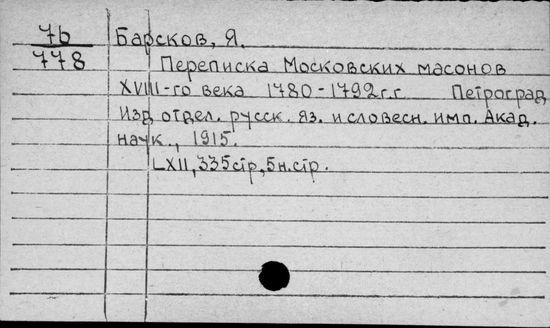 7б Барсков, Я.
778 Переписка Московских масонов
XVIII-го века 1780-1792г.г. Петроград
Изд. отдел. русск. яз. и словесн. имп. Акад.
наук., 1915.
LXII, 335стр, 5н.стр.